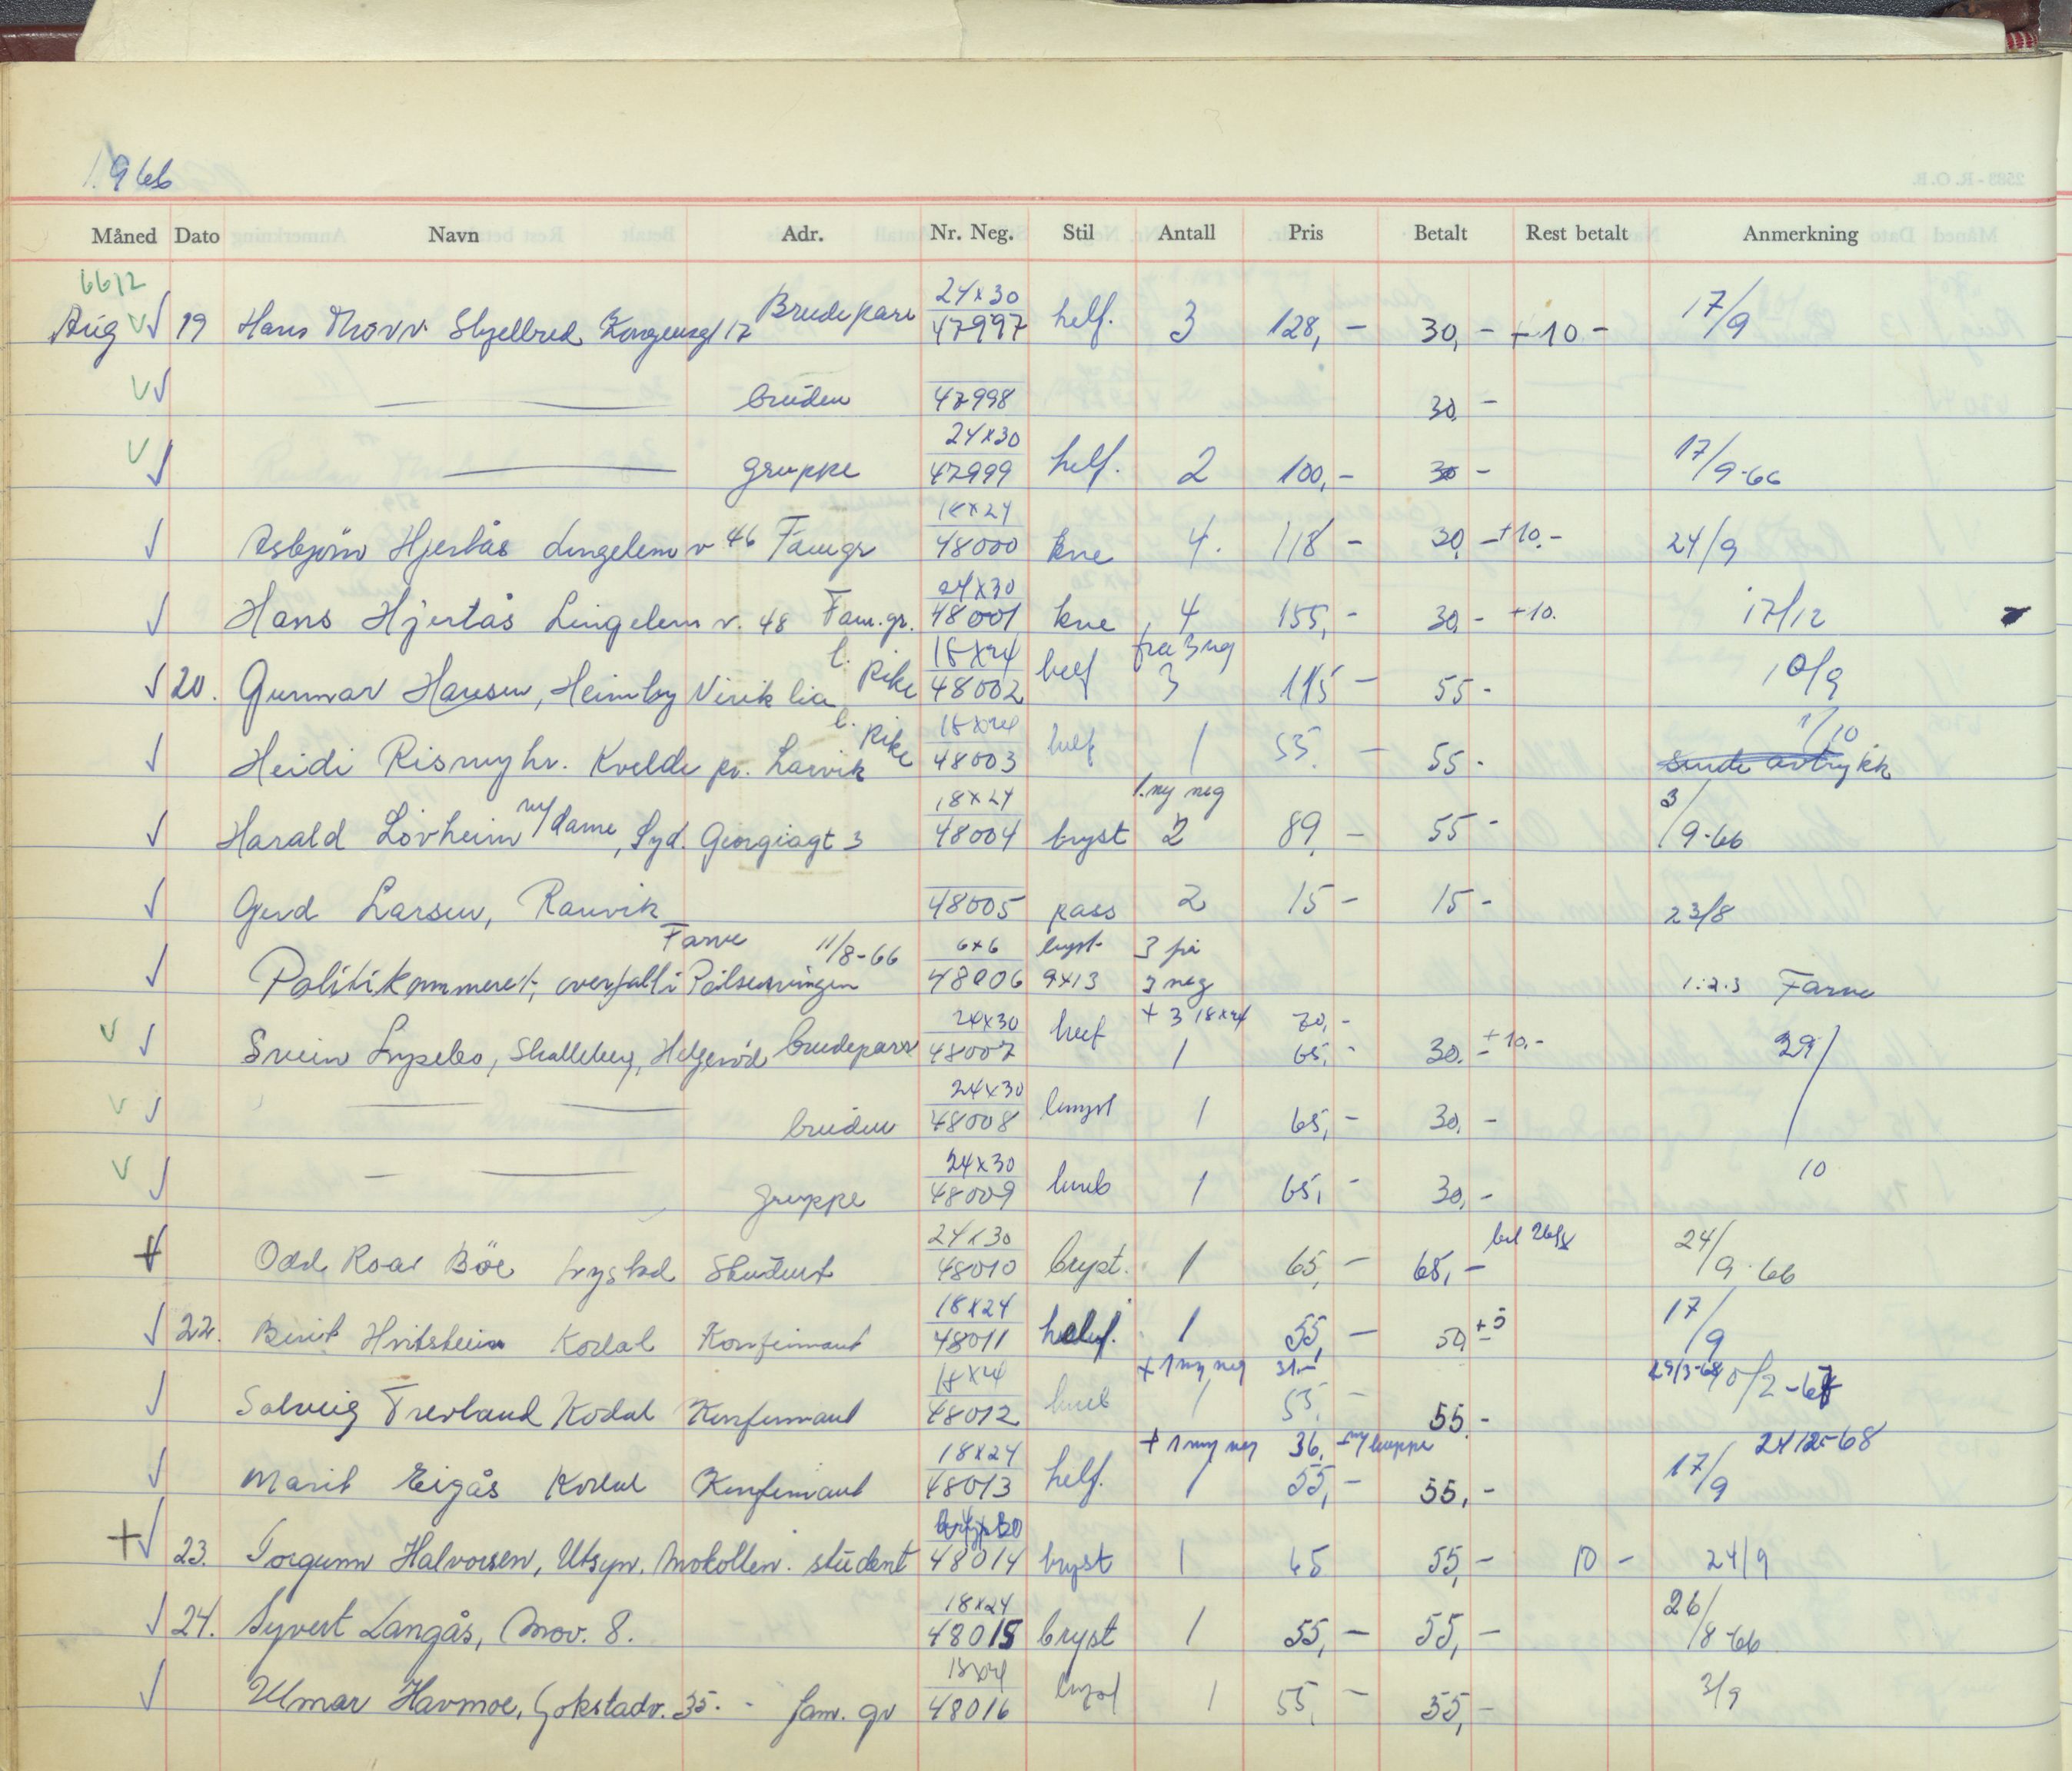 1966
Måned Dato Navn Adr. Nr. Neg. Stil Antall Pris Betalt Rest betalt Anmerkning
6612
Aug 19 Hans Thorv. Skjelbred Kongensgt 12 Brudepare 24x30 47997 helf. 3 128,- 30,- +10- 17/9
bruden 47998 30,-
gruppe 24x30 47999 helf. 2 100,- 30- 17/9-66
Asbjörn Hjertås Lingelem v 46 Famgr 18x24 48000 kne 4. 118- 30,- +10.- 24/9
Hans Hjertås Lingelem v. 48 Fam.gr. 24x30 48001 kne 4 155,- 30,- +10. 17/12
20. Gunnar Hansen, Heimby Virik lia l. Pike 18x24 48002 helf fra 3 neg 3 115- 55- 10/9
Heidi Rismyhr. Kvelde pr. Larvik l. Pike 18x24 48003 helf 1 55.- 55- 1/10
sende avtrykk
Harald Lövheim m/dame, Syd. Georgiagt 3 18x24 48004 bryst 1. ny neg 2 89,- 55- 3/9-66
Gerd Larsen, Ranvik 48005 pass 2 15- 15- 23/8
Farve 11/8-66 6x6 bryst 3 på
Politikammeret, overfall i Pölsesvingen 48006 9x13 3 neg 1.2.3 Farve
24x30 helf + 3 18x24 70,-
Svein Lysebo, Skalleberg, Helgeröd brudeparr 48007 1 65,- 30.- +10.- 29/10
bruden 24x30 48008 bryst 1 65,- 30,-
gruppe 24x30 48009 1 65,- 30,-
Odd Roar Böe Student 24x30 48010 bryst. 1 65,- 65,- 24/9-66
22. Berit Hvitstein Kodal Konfirmant 18x24 48011 helf. 1 55,- 50 +5 17/9
+ 1 ny neg 31.- 29/3-68
Solveig Trevland Kodal Konfirmant 18x24 48012 1 55.- 55.-
+ 1 ny neg 36,- 24/12-68
Marit Eigås Kodal Konfirmant 18x24 48013 helf. 1 55,- 55,- 17/9
23. Torgunn Halvorsen, Utsyn, Mokollen. student 48014 bryst 1 65 55,- 10- 24/9
24. Syvert Langås, Mov. 8. 18x24 48015 bryst 1 55,- 55,- 26/8-66
Ulmar Havmoe, Gokstadv. 35. - fam. gr 18x24 48016 bryst 1 55,- 55,- 3/9